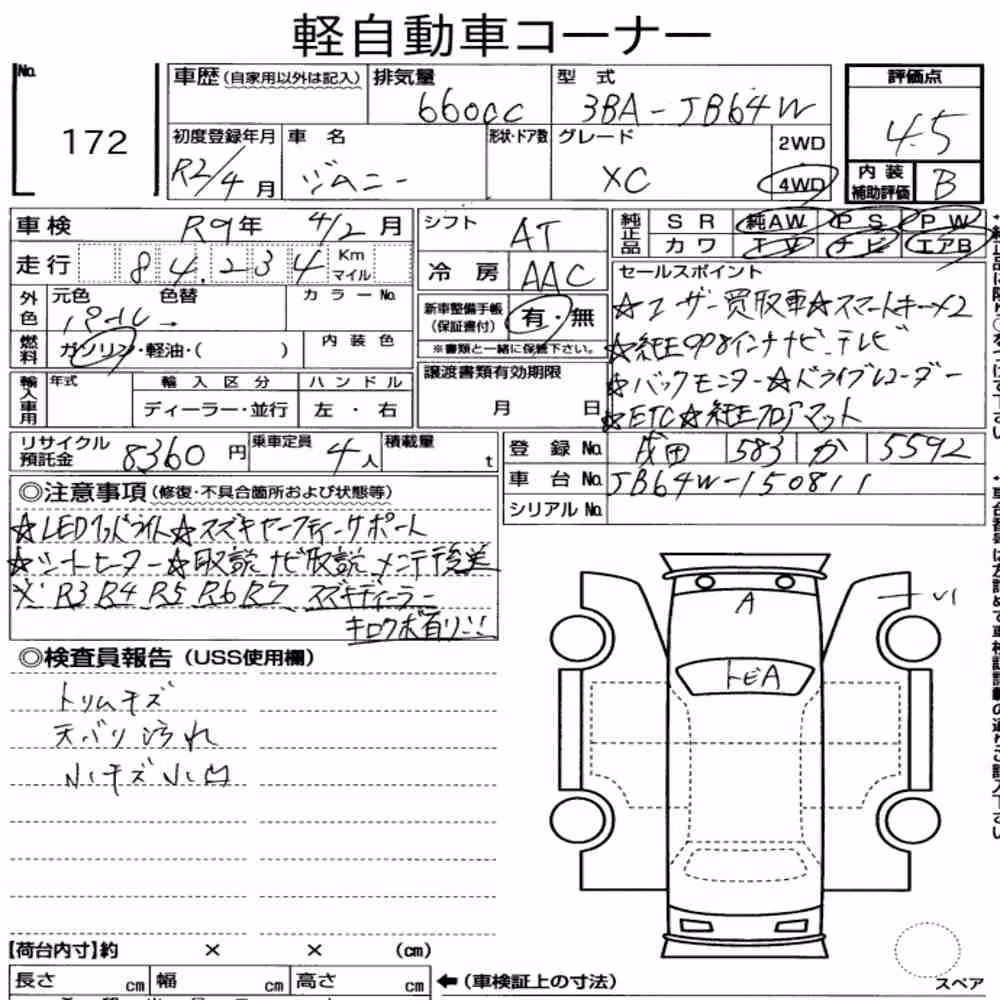 軽自動車コーナー
No. 172
車歴(自家用以外は記入) 排気量 660cc 型式 3BA-JB64W 評価点 4.5
初度登録年月 R2/4月 車名 ジムニー 形状・ドア数 グレード XC 2WD 4WD
内装補助評価 B
車検 R9年 4/2月 シフト AT
純正品 SR 純AW PS PW
カワ TV ナビ エアB
走行 84,234 Km マイル 冷房 AAC
外色 元色 パール 色替 カラーNo.
新車整備手帳(保証書付) 有・無
※書類と一緒に保管下さい。
燃料 ガソリン・軽油・( ) 内装色
セールスポイント
☆ユーザー買取車☆スマートキー×2
☆純正9or8インチナビ テレビ
☆バックモニター☆ドライブレコーダー
☆ETC☆純正フロアマット
輸入車用 年式 輸入区分 ハンドル
ディーラー・並行 左・右
譲渡書類有効期限
月 日
リサイクル預託金 8360円 乗車定員 4人 積載量 t
登録No. 成田 583 か 5592
車台No. JB64W-150811
シリアルNo.
◎注意事項(修復・不具合箇所および状態等)
☆LEDヘッドライト☆スズキセーフティーサポート
☆シートヒーター☆取説 ナビ取説 メンテ後送
※R3 R4 R5 R6 R7 スズキディーラー
キロクボ有リ!!
◎検査員報告(USS使用欄)
トリムキズ
天バリ汚れ
小キズ小凹
A
トビA
【荷台内寸】約 × × (cm)
長さ cm 幅 cm 高さ cm
←(車検証上の寸法)
スペア